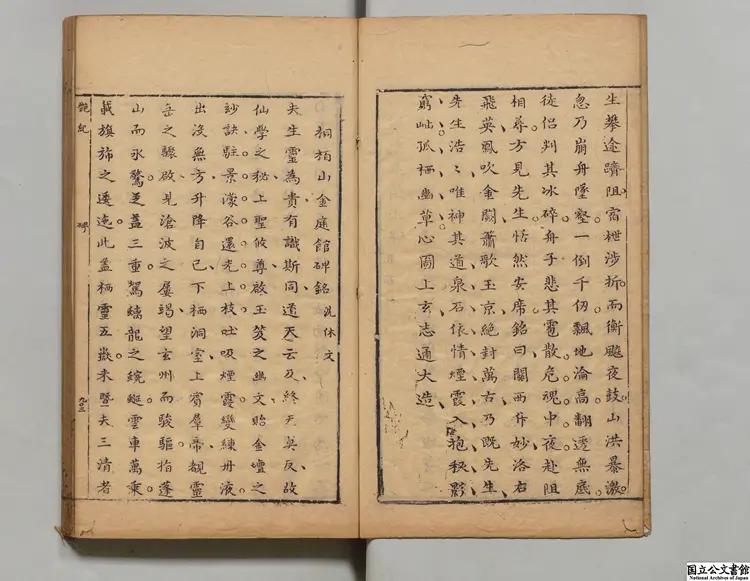 生攀途躋阻當枻涉折而衡飈夜鼓山洪暴激
忽乃崩舟墜壑一倒千仞飄地淪高翻透無底
徒侶判其冰碎舟子悲其雹散危魂中夜赴阻
相尋方見先生恬然安席銘曰關西升妙洛右
飛英鳳吹金闕蕭歌玉京絕封萬古乃既先生
先生浩〻唯神其道泉石依情煙霞入抱秘影
窮岫孤栖幽草心圖上玄志通大造
桐栢山金庭館碑銘 沈休文
夫生靈為貴有識斯同道天云及終天莫反故
仙學之秘上聖攸尊啟玉笈之幽文貽金壇之
妙訣駐景濛谷還光上枝吐吸煙霞變練丹液
出沒無方升降自己下栖洞室上賓羣帝覩靈
岳之驟啟見滄波之屢竭望玄州而駿驅指蓬
山而永騖芝蓋三重駕螭龍之蜿蜒雲車萬乘
載旗旆之逶迤此蓋栖靈五嶽未暨夫三清者
碑
国立公文書館
National Archives of Japan